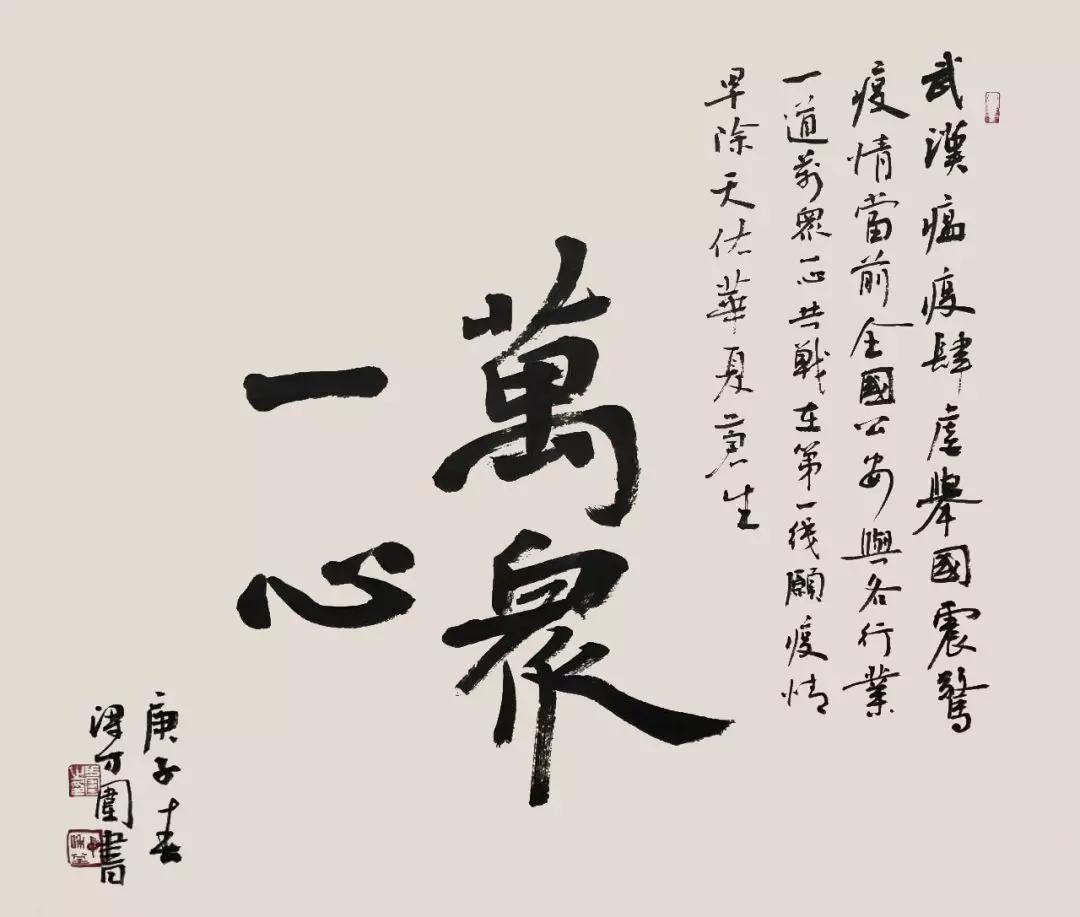 武漢瘟疫肆虐舉國震驚
疫情當前全國公安與各行業
一道萬眾一心共戰在第一綫願疫情
早除天佑華夏蒼生
萬眾
一心
庚子春
圍書